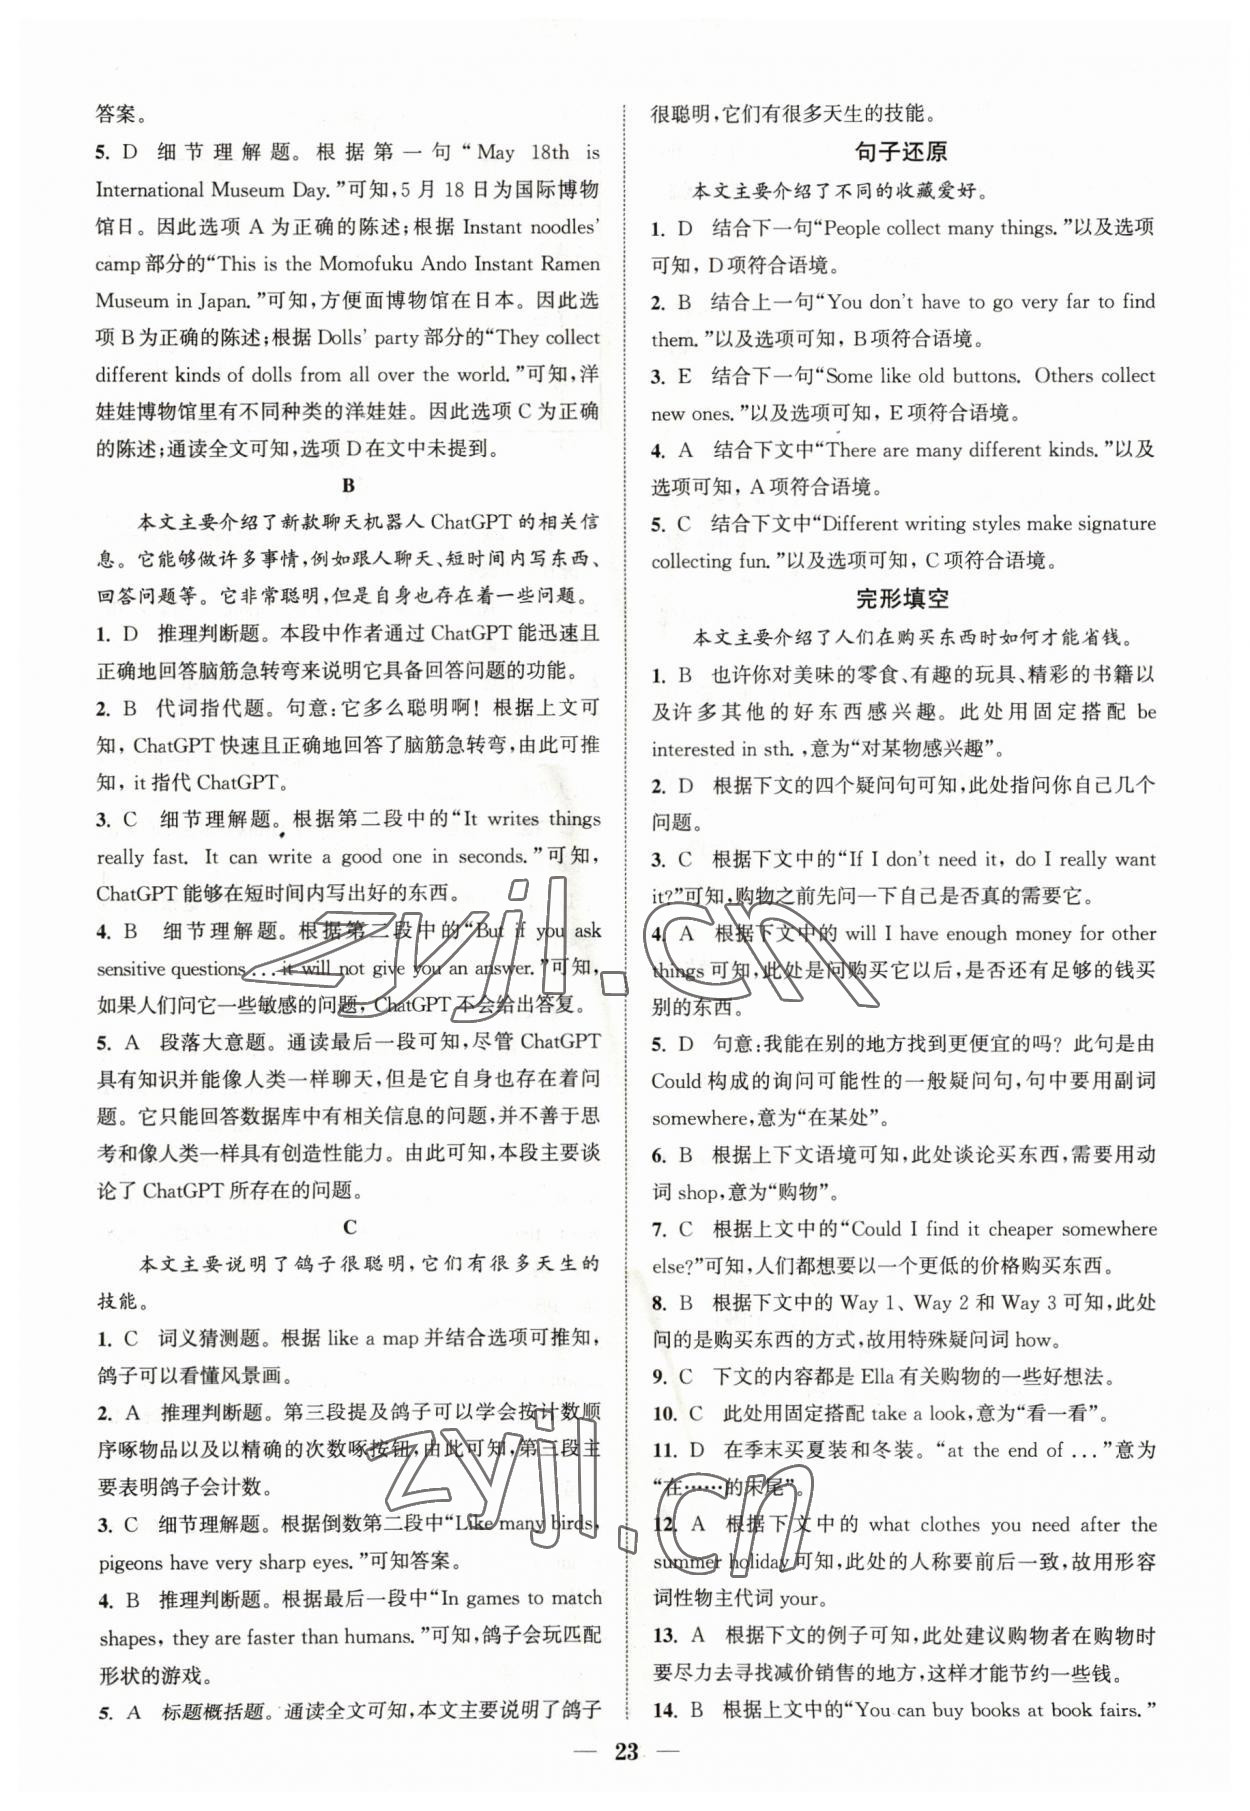 答案。
5. D 细节理解题。根据第一句“May 18th is
International Museum Day.”可知,5月18日为国际博物
馆日。因此选项A为正确的陈述;根据Instant noodles'
camp部分的“This is the Momofuku Ando Instant Ramen
Museum in Japan.”可知,方便面博物馆在日本。因此选
项B为正确的陈述;根据Dolls' party部分的“They collect
different kinds of dolls from all over the world.”可知,洋
娃娃博物馆里有不同种类的洋娃娃。因此选项C为正确
的陈述;通读全文可知,选项D在文中未提到。
B
本文主要介绍了新款聊天机器人ChatGPT的相关信
息。它能够做许多事情,例如跟人聊天、短时间内写东西、
回答问题等。它非常聪明,但是自身也存在着一些问题。
1. D 推理判断题。本段中作者通过ChatGPT能迅速且
正确地回答脑筋急转弯来说明它具备回答问题的功能。
2. B 代词指代题。句意:它多么聪明啊!根据上文可
知,ChatGPT快速且正确地回答了脑筋急转弯,由此可推
知,it指代ChatGPT。
3. C 细节理解题。根据第二段中的“It writes things
really fast. It can write a good one in seconds.”可知,
ChatGPT能够在短时间内写出好的东西。
4. B 细节理解题。根据第二段中的“But if you ask
sensitive questions...it will not give you an answer.”可知,
如果人们问它一些敏感的问题,ChatGPT不会给出答复。
5. A 段落大意题。通读最后一段可知,尽管ChatGPT
具有知识并能像人类一样聊天,但是它自身也存在着问
题。它只能回答数据库中有相关信息的问题,并不善于思
考和像人类一样具有创造性能力。由此可知,本段主要谈
论了ChatGPT所存在的问题。
C
本文主要说明了鸽子很聪明,它们有很多天生的
技能。
1. C 词义猜测题。根据like a map并结合选项可推知,
鸽子可以看懂风景画。
2. A 推理判断题。第三段提及鸽子可以学会按计数顺
序啄物品以及以精确的次数啄按钮,由此可知,第三段主
要表明鸽子会计数。
3. C 细节理解题。根据倒数第二段中“Like many birds,
pigeons have very sharp eyes.”可知答案。
4. B 推理判断题。根据最后一段中“In games to match
shapes, they are faster than humans.”可知,鸽子会玩匹配
形状的游戏。
5. A 标题概括题。通读全文可知,本文主要说明了鸽子
很聪明,它们有很多天生的技能。
句子还原
本文主要介绍了不同的收藏爱好。
1. D 结合下一句“People collect many things.”以及选项
可知,D项符合语境。
2. B 结合上一句“You don't have to go very far to find
them.”以及选项可知,B项符合语境。
3. E 结合下一句“Some like old buttons. Others collect
new ones.”以及选项可知,E项符合语境。
4. A 结合下文中“There are many different kinds.”以及
选项可知,A项符合语境。
5. C 结合下文中“Different writing styles make signature
collecting fun.”以及选项可知,C项符合语境。
完形填空
本文主要介绍了人们在购买东西时如何才能省钱。
1. B 也许你对美味的零食、有趣的玩具、精彩的书籍以
及许多其他的好东西感兴趣。此处用固定搭配be
interested in sth.,意为“对某物感兴趣”。
2. D 根据下文的四个疑问句可知,此处指问你自己几个
问题。
3. C 根据下文中的“If I don't need it, do I really want
it?”可知,购物之前先问一下自己是否真的需要它。
4. A 根据下文中的will I have enough money for other
things可知,此处是问购买它以后,是否还有足够的钱买
别的东西。
5. D 句意:我能在别的地方找到更便宜的吗?此句是由
Could构成的询问可能性的一般疑问句,句中要用副词
somewhere,意为“在某处”。
6. B 根据上下文语境可知,此处谈论买东西,需要用动
词shop,意为“购物”。
7. C 根据上文中的“Could I find it cheaper somewhere
else?”可知,人们都想要以一个更低的价格购买东西。
8. B 根据下文中的Way 1、Way 2和Way 3可知,此处
问的是购买东西的方式,故用特殊疑问词how。
9. C 下文的内容都是Ella有关购物的一些好想法。
10. C 此处用固定搭配take a look,意为“看一看”。
11. D 在季末买夏装和冬装。“at the end of ...”意为
“在……的末尾”。
12. A 根据下文中的what clothes you need after the
summer holiday可知,此处的人称要前后一致,故用形容
词性物主代词your。
13. A 根据下文的例子可知,此处建议购物者在购物时
要尽力去寻找减价销售的地方,这样才能节约一些钱。
14. B 根据上文中的“You can buy books at book fairs.”
— 23 —
zyjl.cn
zyjl.cn